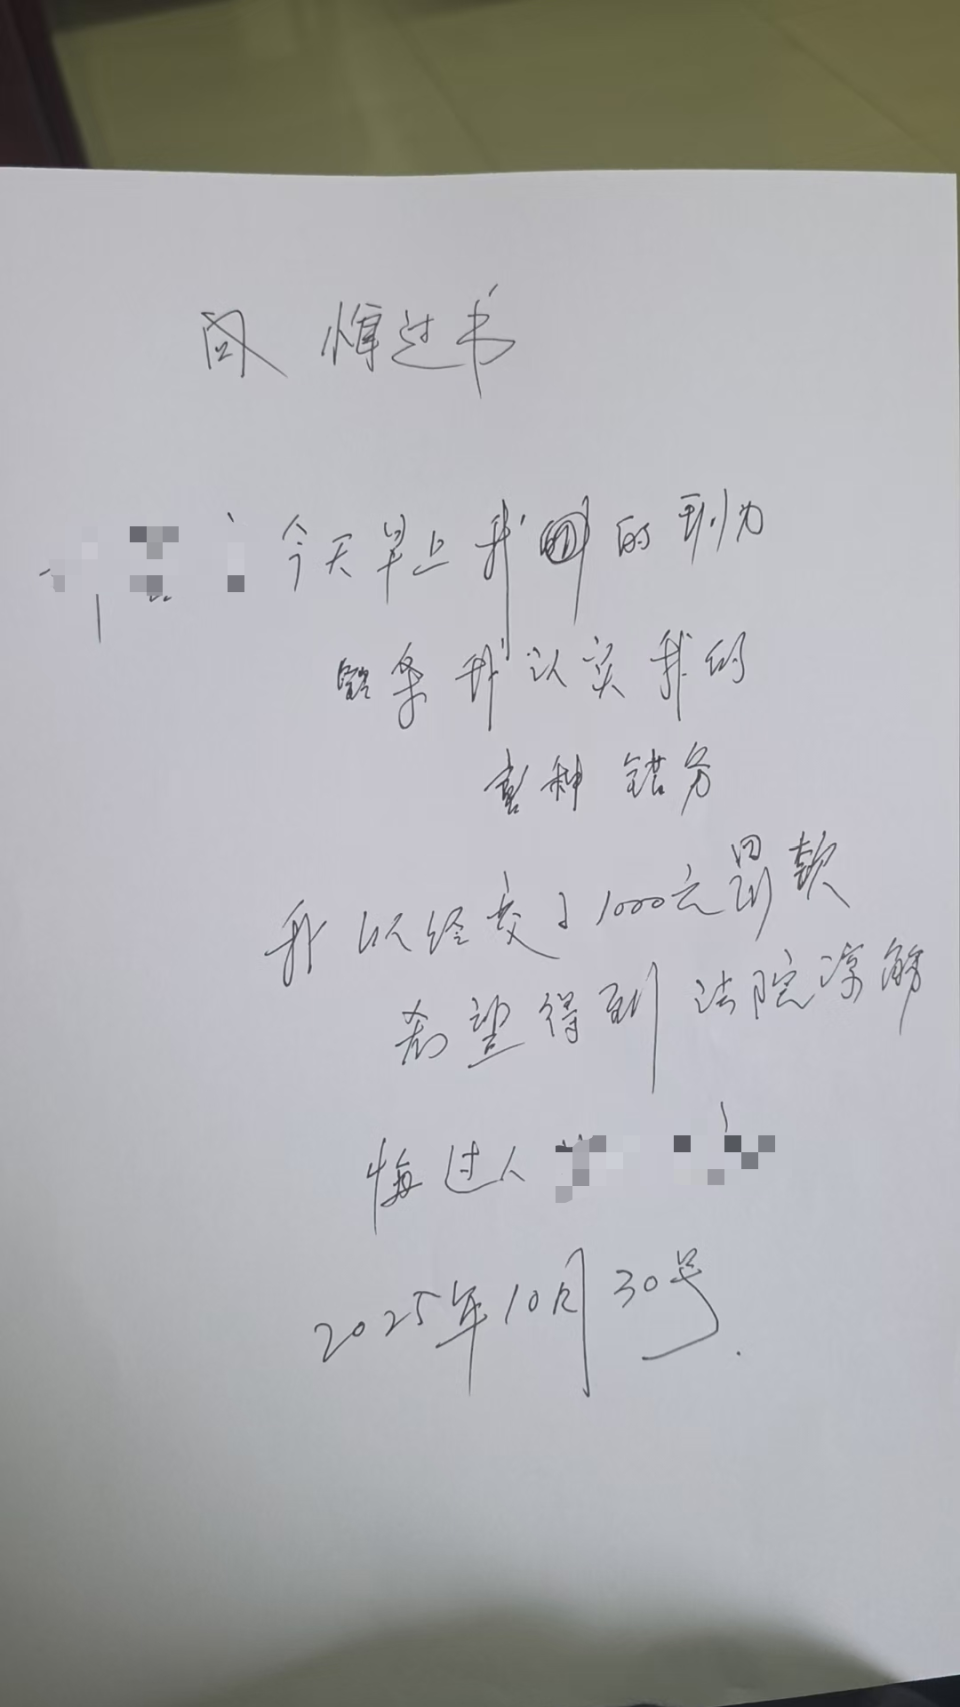 悔过书
今天早上我的到为
我认实我的
错务
我以经交了1000元罚款
希望得到法院凉解
悔过人
2025年10月30号.